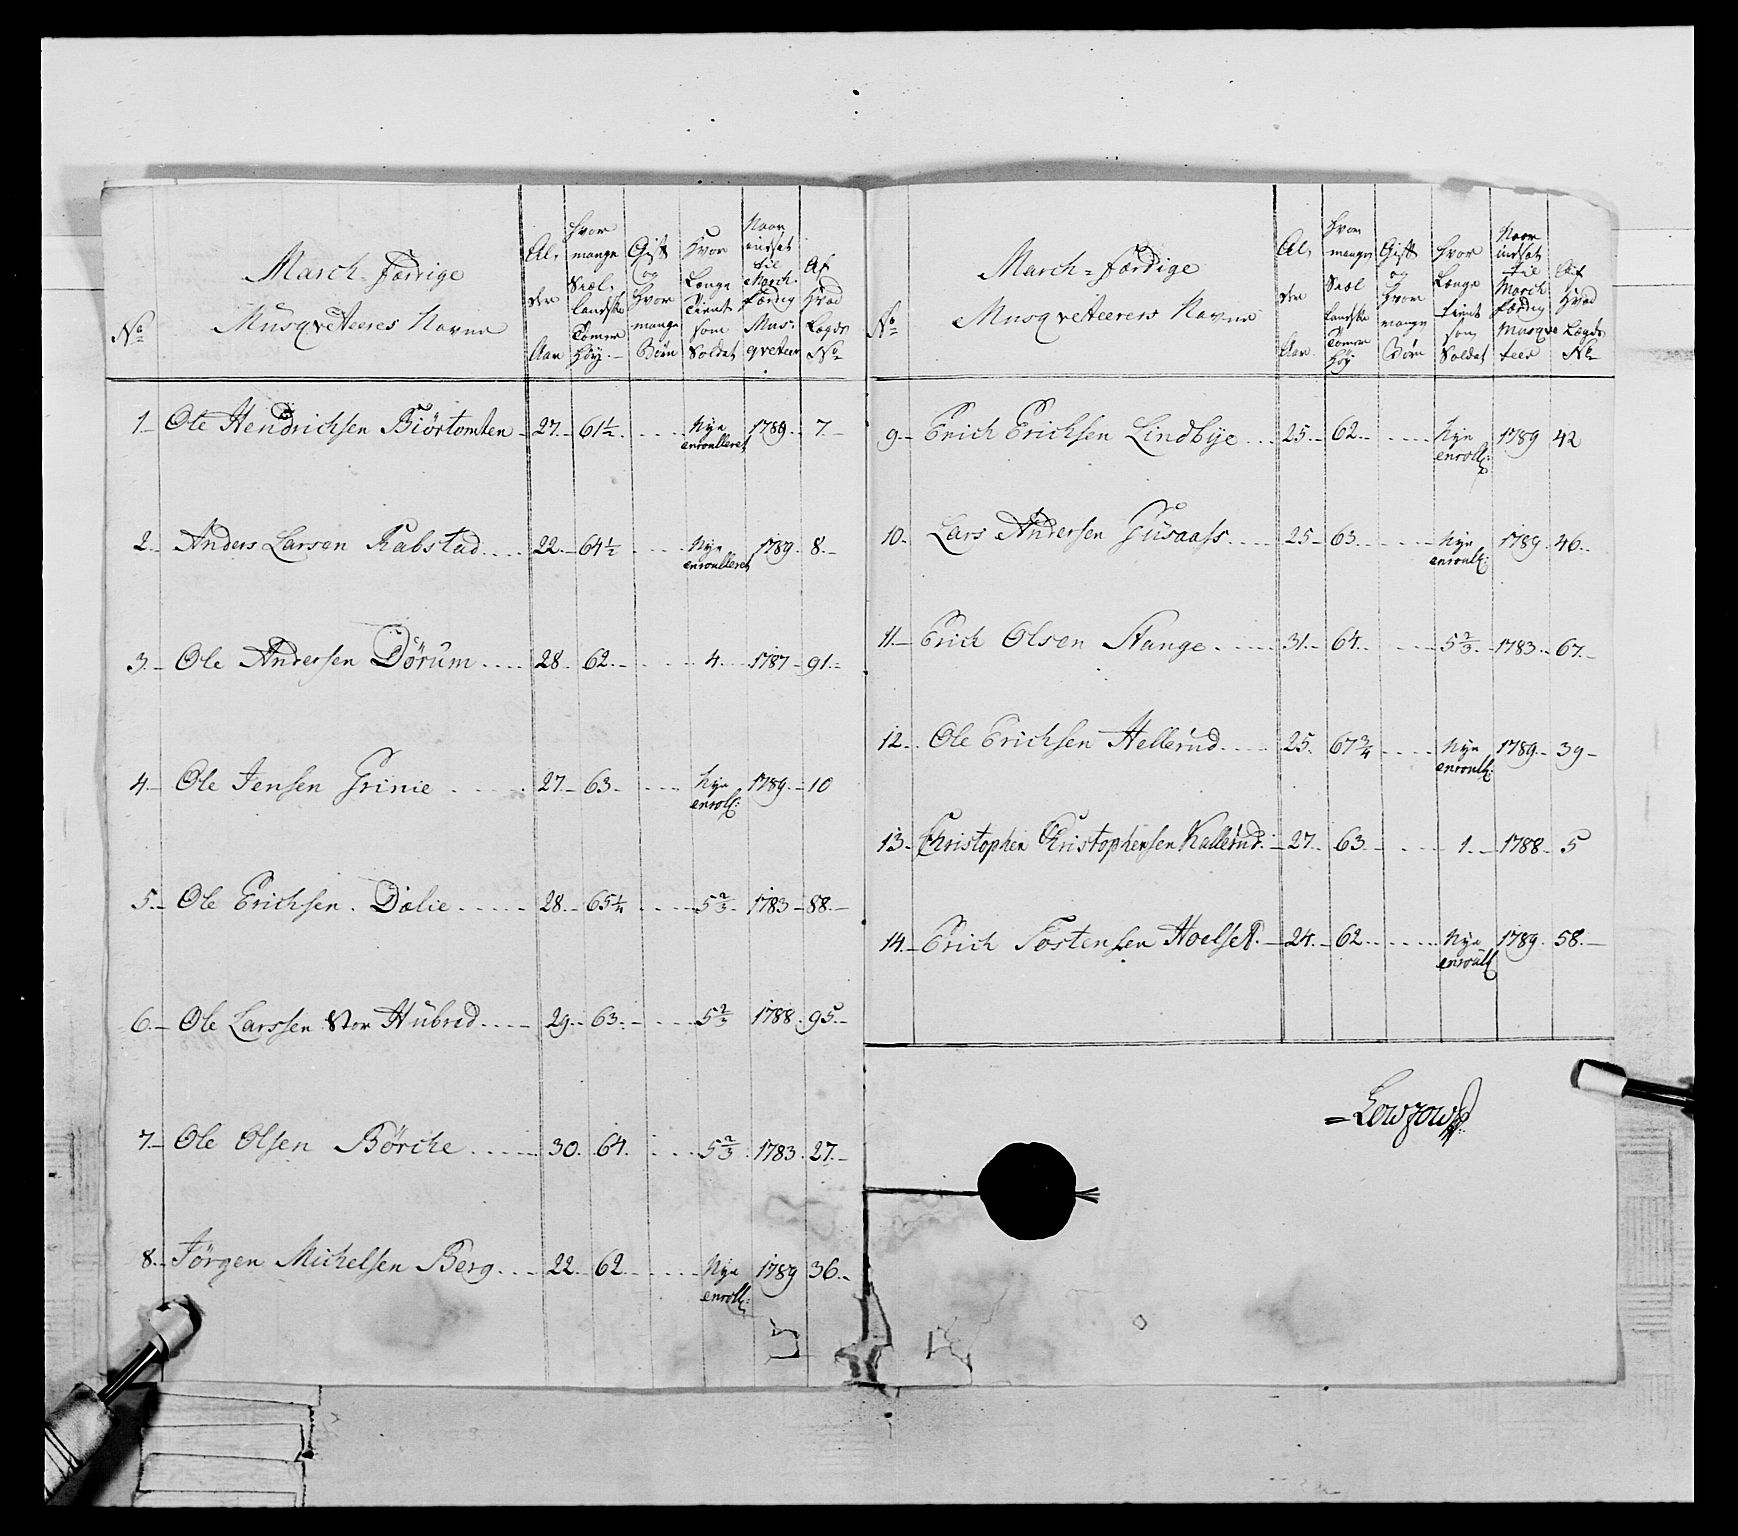 No
March-færdige
Musqveteeres Navne
Al,
der
Aar
Hvor
mange
Siæl,
landske
Tomer
Høy.
Gift
og
Hvor
mange
Børn
Hvor
Længe
Tient
som
Soldat
Naar
indsat
til
March-
færdig
Mus-
qveteer
Af
Hvad
Lægds
No
1 Ole Hendrichsen Biörtomten 27 61½ Nye enroulleret 1789 7
2 Anders Larsen Rabstad 22 64½ Nye enroulleret 1789 8
3 Ole Andersen Dörum 28 62 4 1787 91
4 Ole Jensen Grinie 27 63 Nye enroll: 1789 10
5 Ole Erichsen Dælie 28 65¼ 5⅔ 1783 88
6 Ole Larssen Stor Hubred 29 63 5⅔ 1788 95
7 Ole Olsen Börche 30 64 5⅔ 1783 27
8 Jörgen Michelsen Berg 22 62 Nye enroll: 1789 36
No
March-færdige
Musqveteerers Navne
Al,
der
Aar
Hvor
mange
Siæl
landske
Tomer
Høy
Gift
og
Hvor
mange
Børn
Hvor
Længe
tient
som
Soldat
Naar
indsat
til
March
færdig
Musqve
teer
Af
Hvad
Lægds
No
9 Erich Erichsen Lindbye 25 62 Nye enroll: 1789 42
10 Lars Andersen Gusaass 25 63 Nye enroull: 1789 46
11 Erich Olsen Stange 31 64 5⅔ 1783 67
12 Ole Erichsen Hellerud 25 67¾ Nye enroull: 1789 39
13 Christopher Christophersen Kallerud 27 63 1 1788 5
14 Erich Tostensen Hoelset 24 62 Nye enroull 1789 58
Lowzow